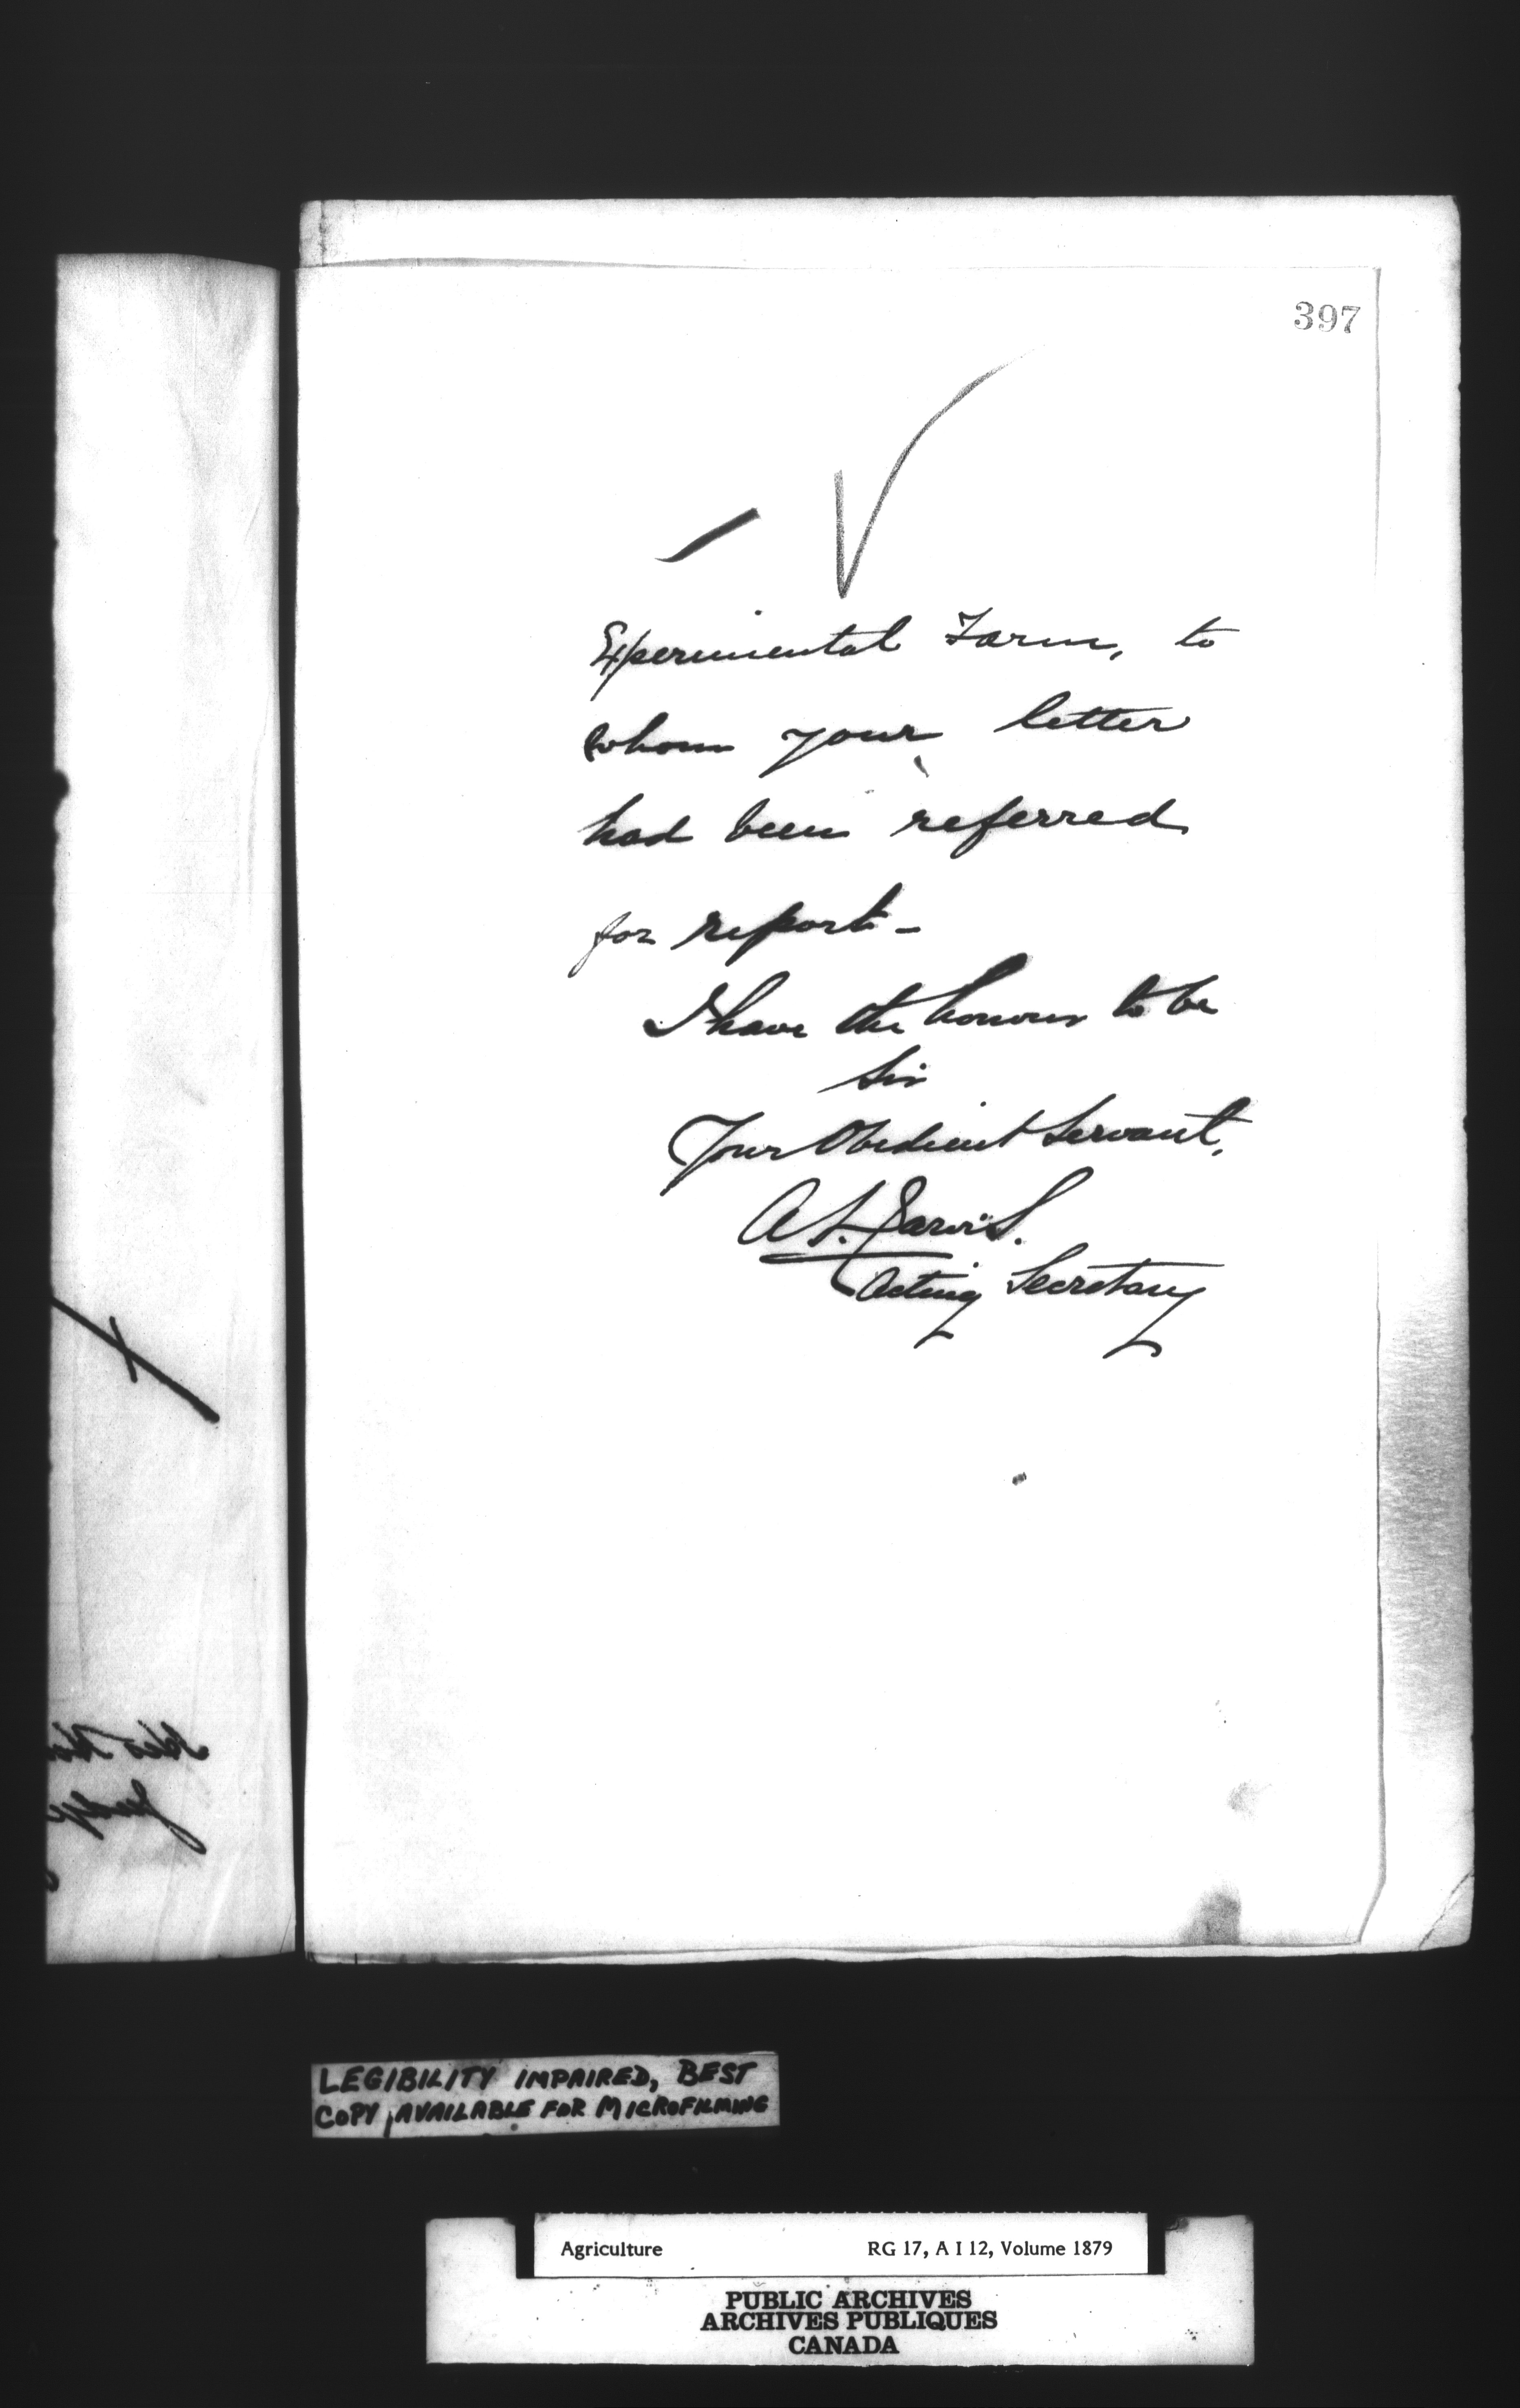 397
Experimental Farm, to
whom your letter
had been referred
for report -
I have the honour to be
Sir
Your Obedient Servant,
A L. Jarvis.
Acting Secretary
LEGIBILITY IMPAIRED, BEST
COPY AVAILABLE FOR MICROFILMING
Agriculture RG 17, A I 12, Volume 1879
PUBLIC ARCHIVES
ARCHIVES PUBLIQUES
CANADA